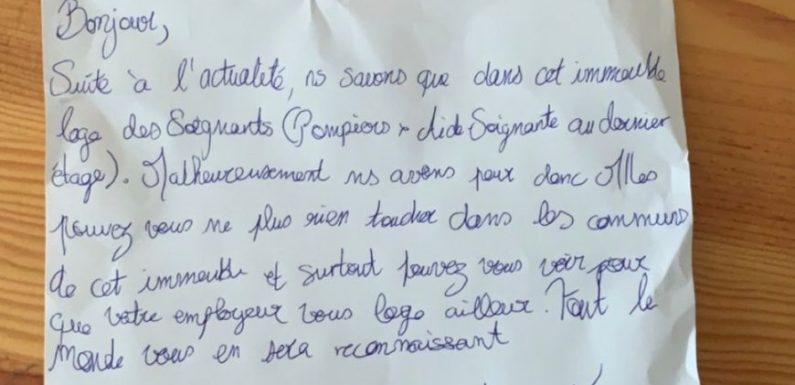 Bonjour,
Suite à l'actualité, ns savons que dans cet immeuble
loge des Soignants (Pompiers + Aide Soignante au dernier
étage). Malheureusement ns avons peur donc Mlles
pouvez vous ne plus rien toucher dans les communs
de cet immeuble et surtout pouvez vous voir pour
que votre employeur vous loge ailleur. Tout le
monde vous en sera reconnaissant